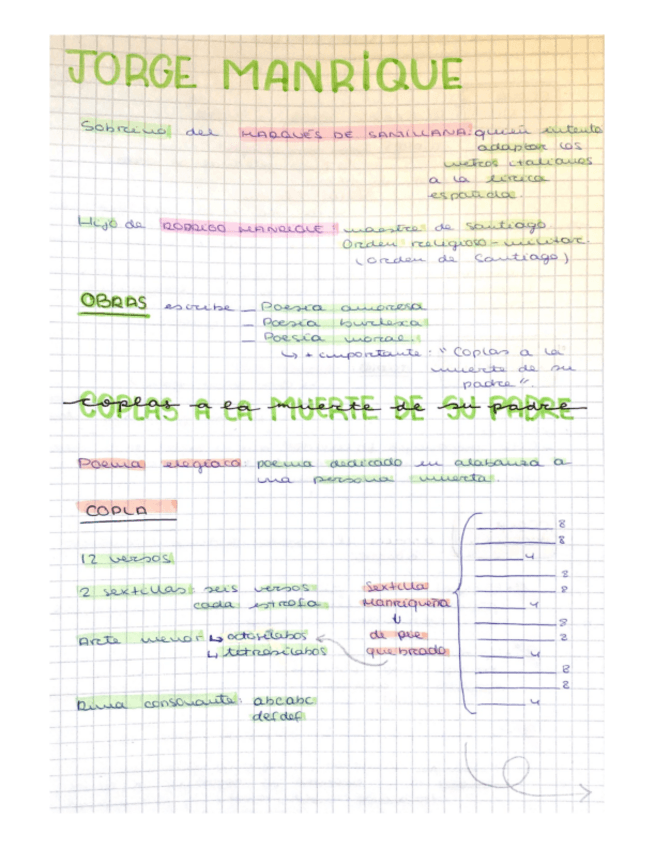 JORGE MANRIQUE
Sobrino del MARQUÉS DE SANTILLANA: quien intentó
adaptar los
metros italianos
a la lírica
española.
Hijo de RODRIGO MANRIQUE: maestre de Santiago
Orden religioso-militar.
(orden de Santiago)
OBRAS escribe — Poesía amorosa
— Poesía burlesca
— Poesía moral:
↳ + importante: "Coplas a la
muerte de su
padre".
COPLAS A LA MUERTE DE SU PADRE
Poema elegíaco: poema dedicado en alabanza a
una persona muerta.
COPLA
12 versos
2 sextillas: seis versos
cada estrofa
Arte menor ↳ octosílabos
↳ tetrasílabos
Rima consonante: abcabc
defdef
Sextilla
Manriqueña
↓
de pie
quebrado
8
8
4
8
8
4
8
8
4
8
8
4